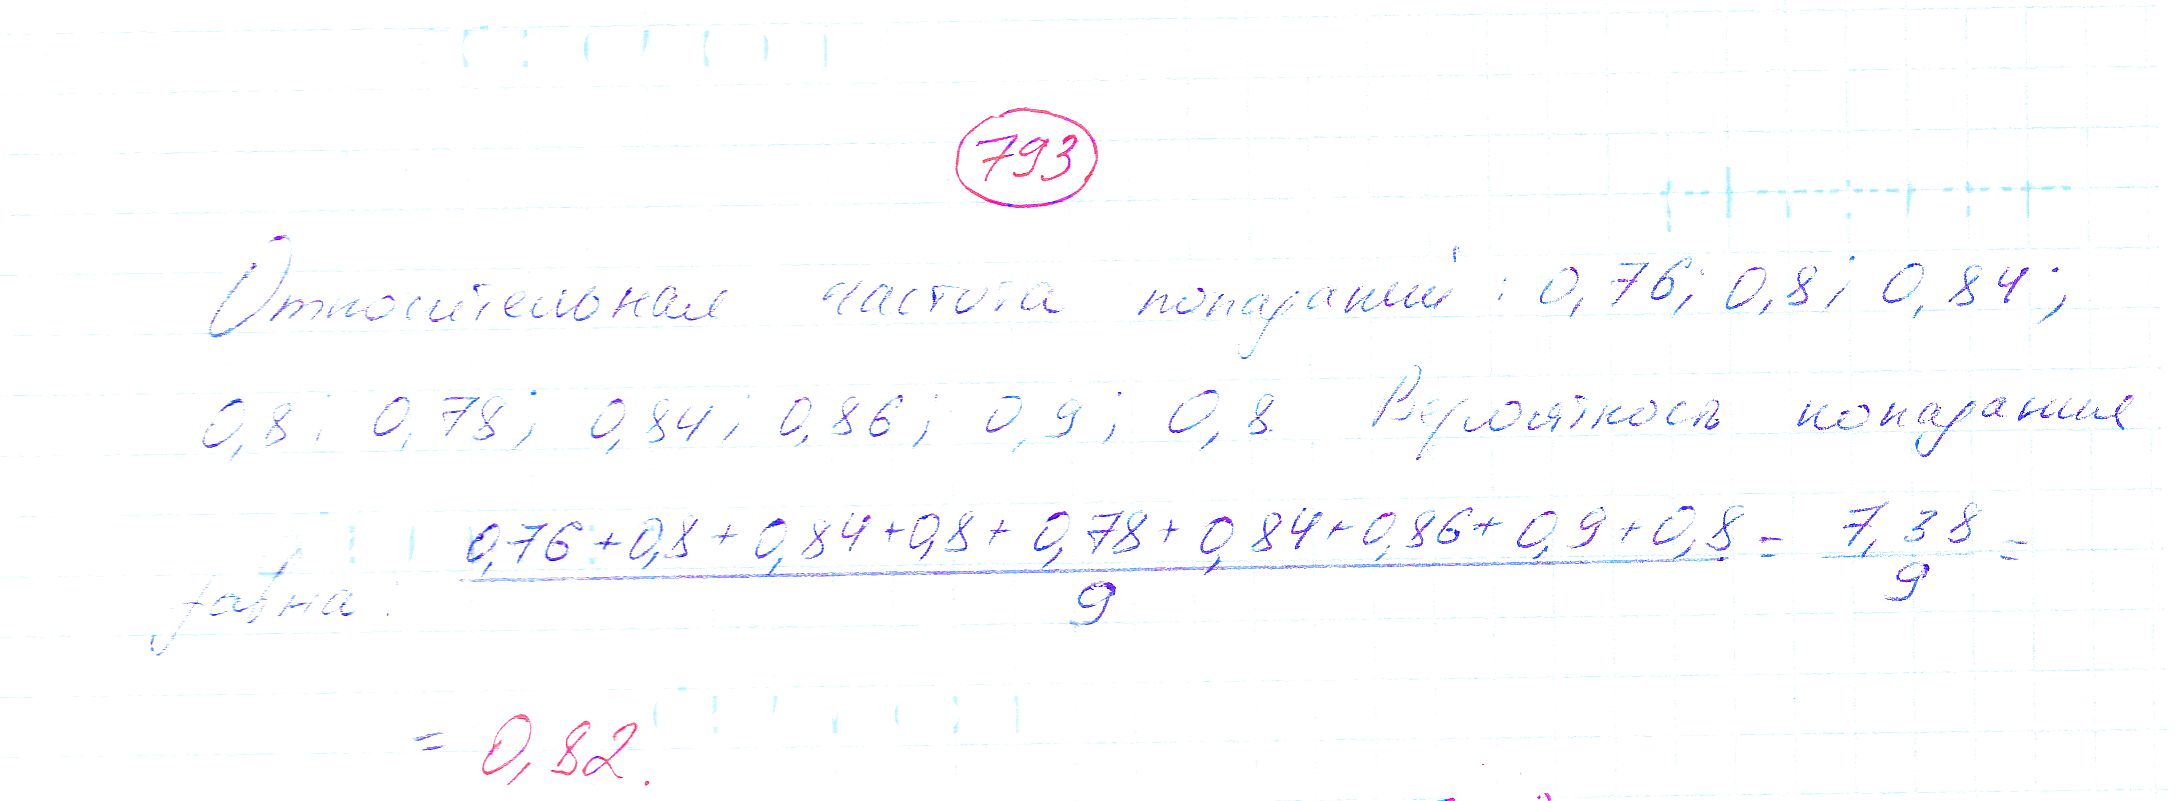 793
Относительная частота попаданий: 0,76; 0,8; 0,84;
0,8; 0,78; 0,84; 0,86; 0,9; 0,8. Вероятность попадания
равна: (0,76+0,8+0,84+0,8+0,78+0,84+0,86+0,9+0,8)/9 = 7,38/9 =
= 0,82.